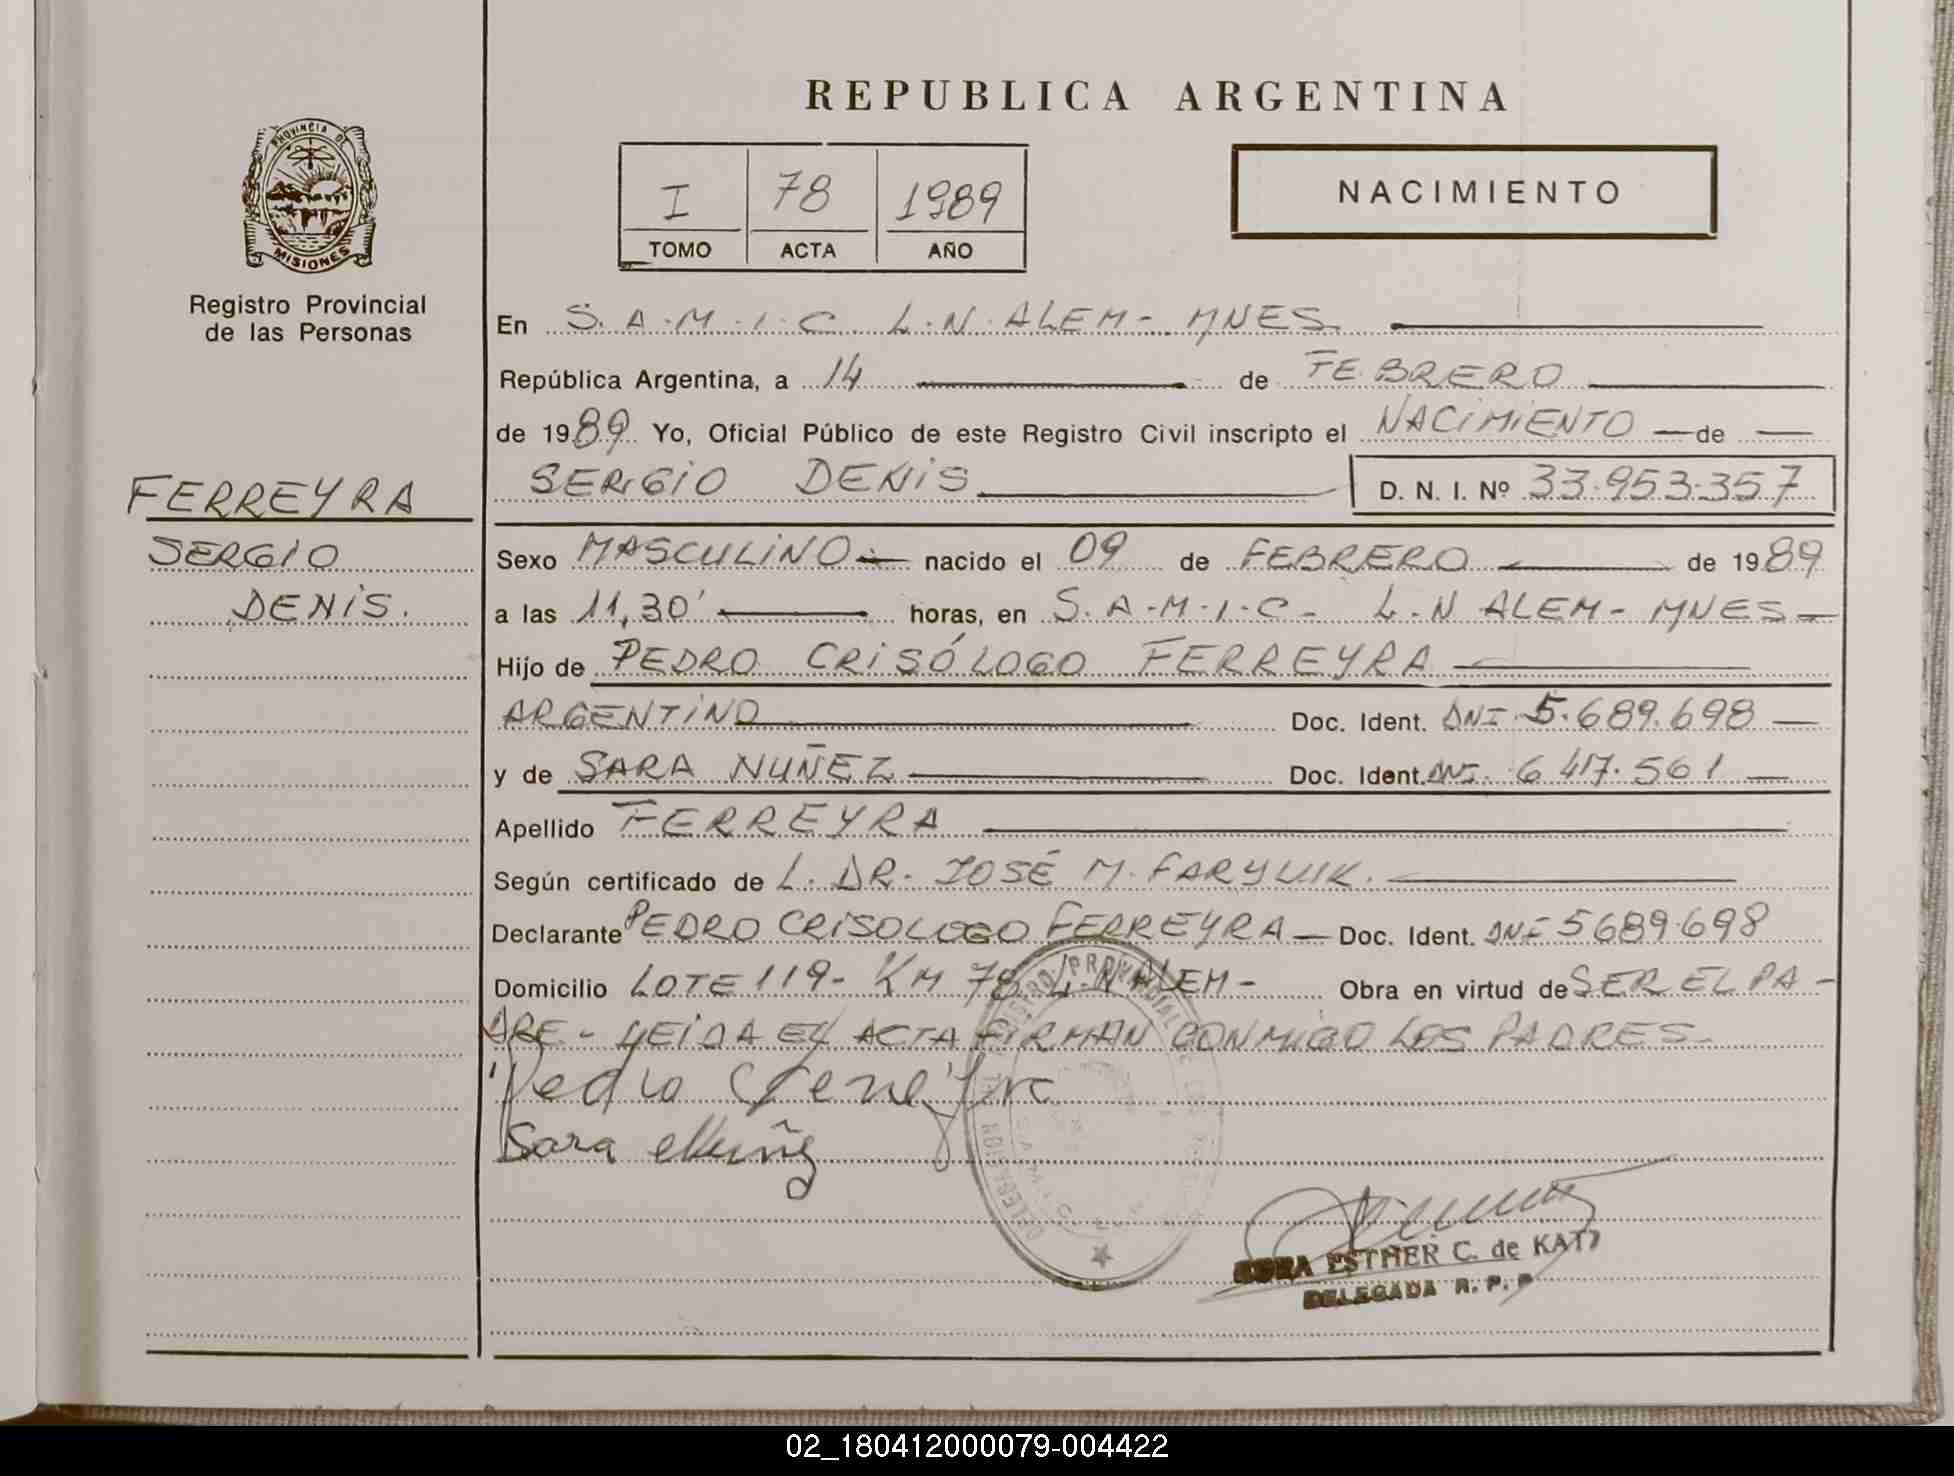 REPUBLICA ARGENTINA
PROVINCIA DE
MISIONES
Registro Provincial
de las Personas
I 78 1989
TOMO ACTA AÑO
NACIMIENTO
En S.A.M.I.C. L.N. ALEM - MNES
República Argentina, a 14 de FEBRERO
de 1989 Yo, Oficial Público de este Registro Civil inscripto el NACIMIENTO de
SERGIO DENIS D. N. I. Nº 33.953.357
FERREYRA
SERGIO
DENIS.
Sexo MASCULINO nacido el 09 de FEBRERO de 1989
a las 11,30' horas, en S.A.M.I.C - L.N ALEM - MNES -
Hijo de PEDRO CRISÓLOGO FERREYRA
ARGENTINO Doc. Ident. DNI. 5.689.698
y de SARA NUÑEZ Doc. Ident. DNI. 6.417.561
Apellido FERREYRA
Según certificado de L. DR. JOSÉ M.
Declarante PEDRO CRISOLOGO FERREYRA - Doc. Ident. DNI 5689.698
Domicilio LOTE 119 - KM 78 L.N ALEM - Obra en virtud de SER EL PA -
DRE - LEIDA EL ACTA FIRMAN CONMIGO LOS PADRES
Pedro C Ferreyra
Sara Nuñez
REGISTRO PROVINCIAL DE LAS
DELEGACION
ESTHER C. de
DELEGADA R. P. P
02_180412000079-004422